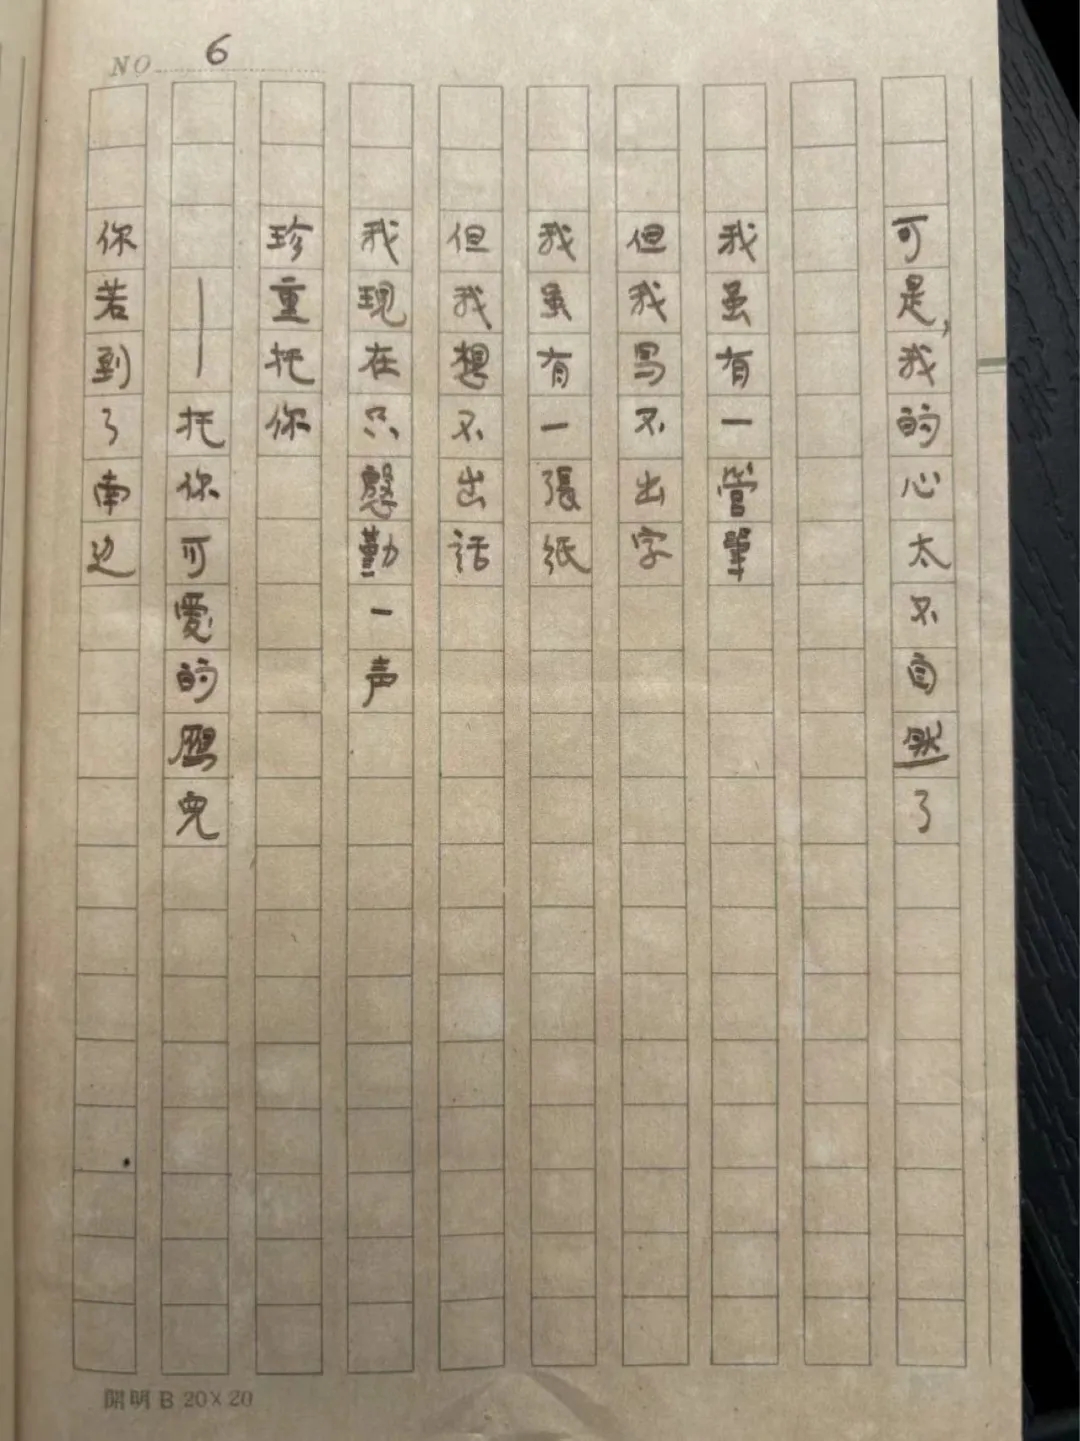 NO 6
可是，我的心太不自然了
我虽有一管筆
但我写不出字
我虽有一張紙
但我想不出話
我現在只慇勤一声
珍重托你
——托你可爱的雁兒
你若到了南边
開明B 20×20